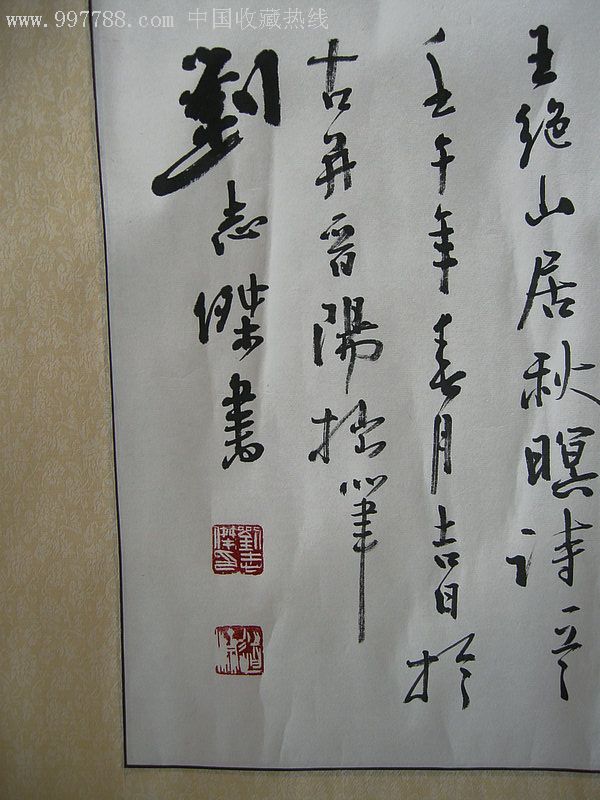 www.997788.com 中国收藏热线
王绝山居秋暝诗一首
壬午年春月吉日於
古并晋陽拙筆
劉志傑書
劉志傑印